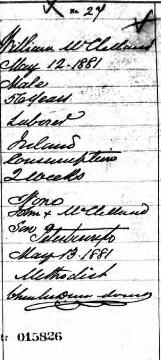 no 24
William McClelland
May 12-1881
Male
56 years
Laborer
Ireland
Consumption
2 weeks
John McClelland
Son
May 13-1881
Methodist
015826